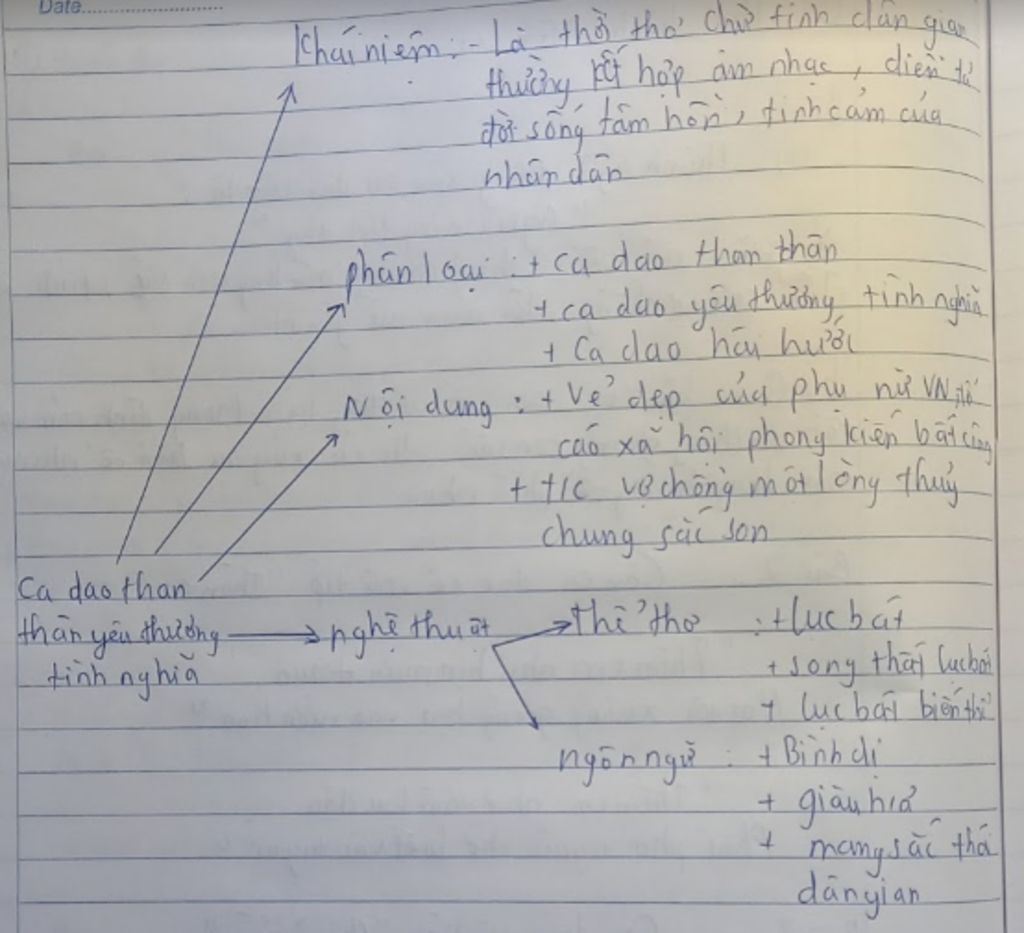 Date
Khái niệm: - Là thời thơ chữ tình dân gian
thường kết hợp âm nhạc, diễn tả
đời sống tâm hồn, tình cảm của
nhân dân
phân loại: + ca dao than thân
+ ca dao yêu thương, tình nghĩa
+ Ca dao hài hước
Nội dung: + Vẻ đẹp của phụ nữ VN, tố
cáo xã hội phong kiến bất công
+ t/c vợ chồng một lòng thuỷ
chung sắc son
Ca dao than
thân yêu thương
tình nghĩa
nghệ thuật
thể thơ : + lục bát
+ song thất lục bát
+ lục bát biến thể
ngôn ngữ : + Bình dị
+ giàu h/ả
+ mang sắc thái
dân gian